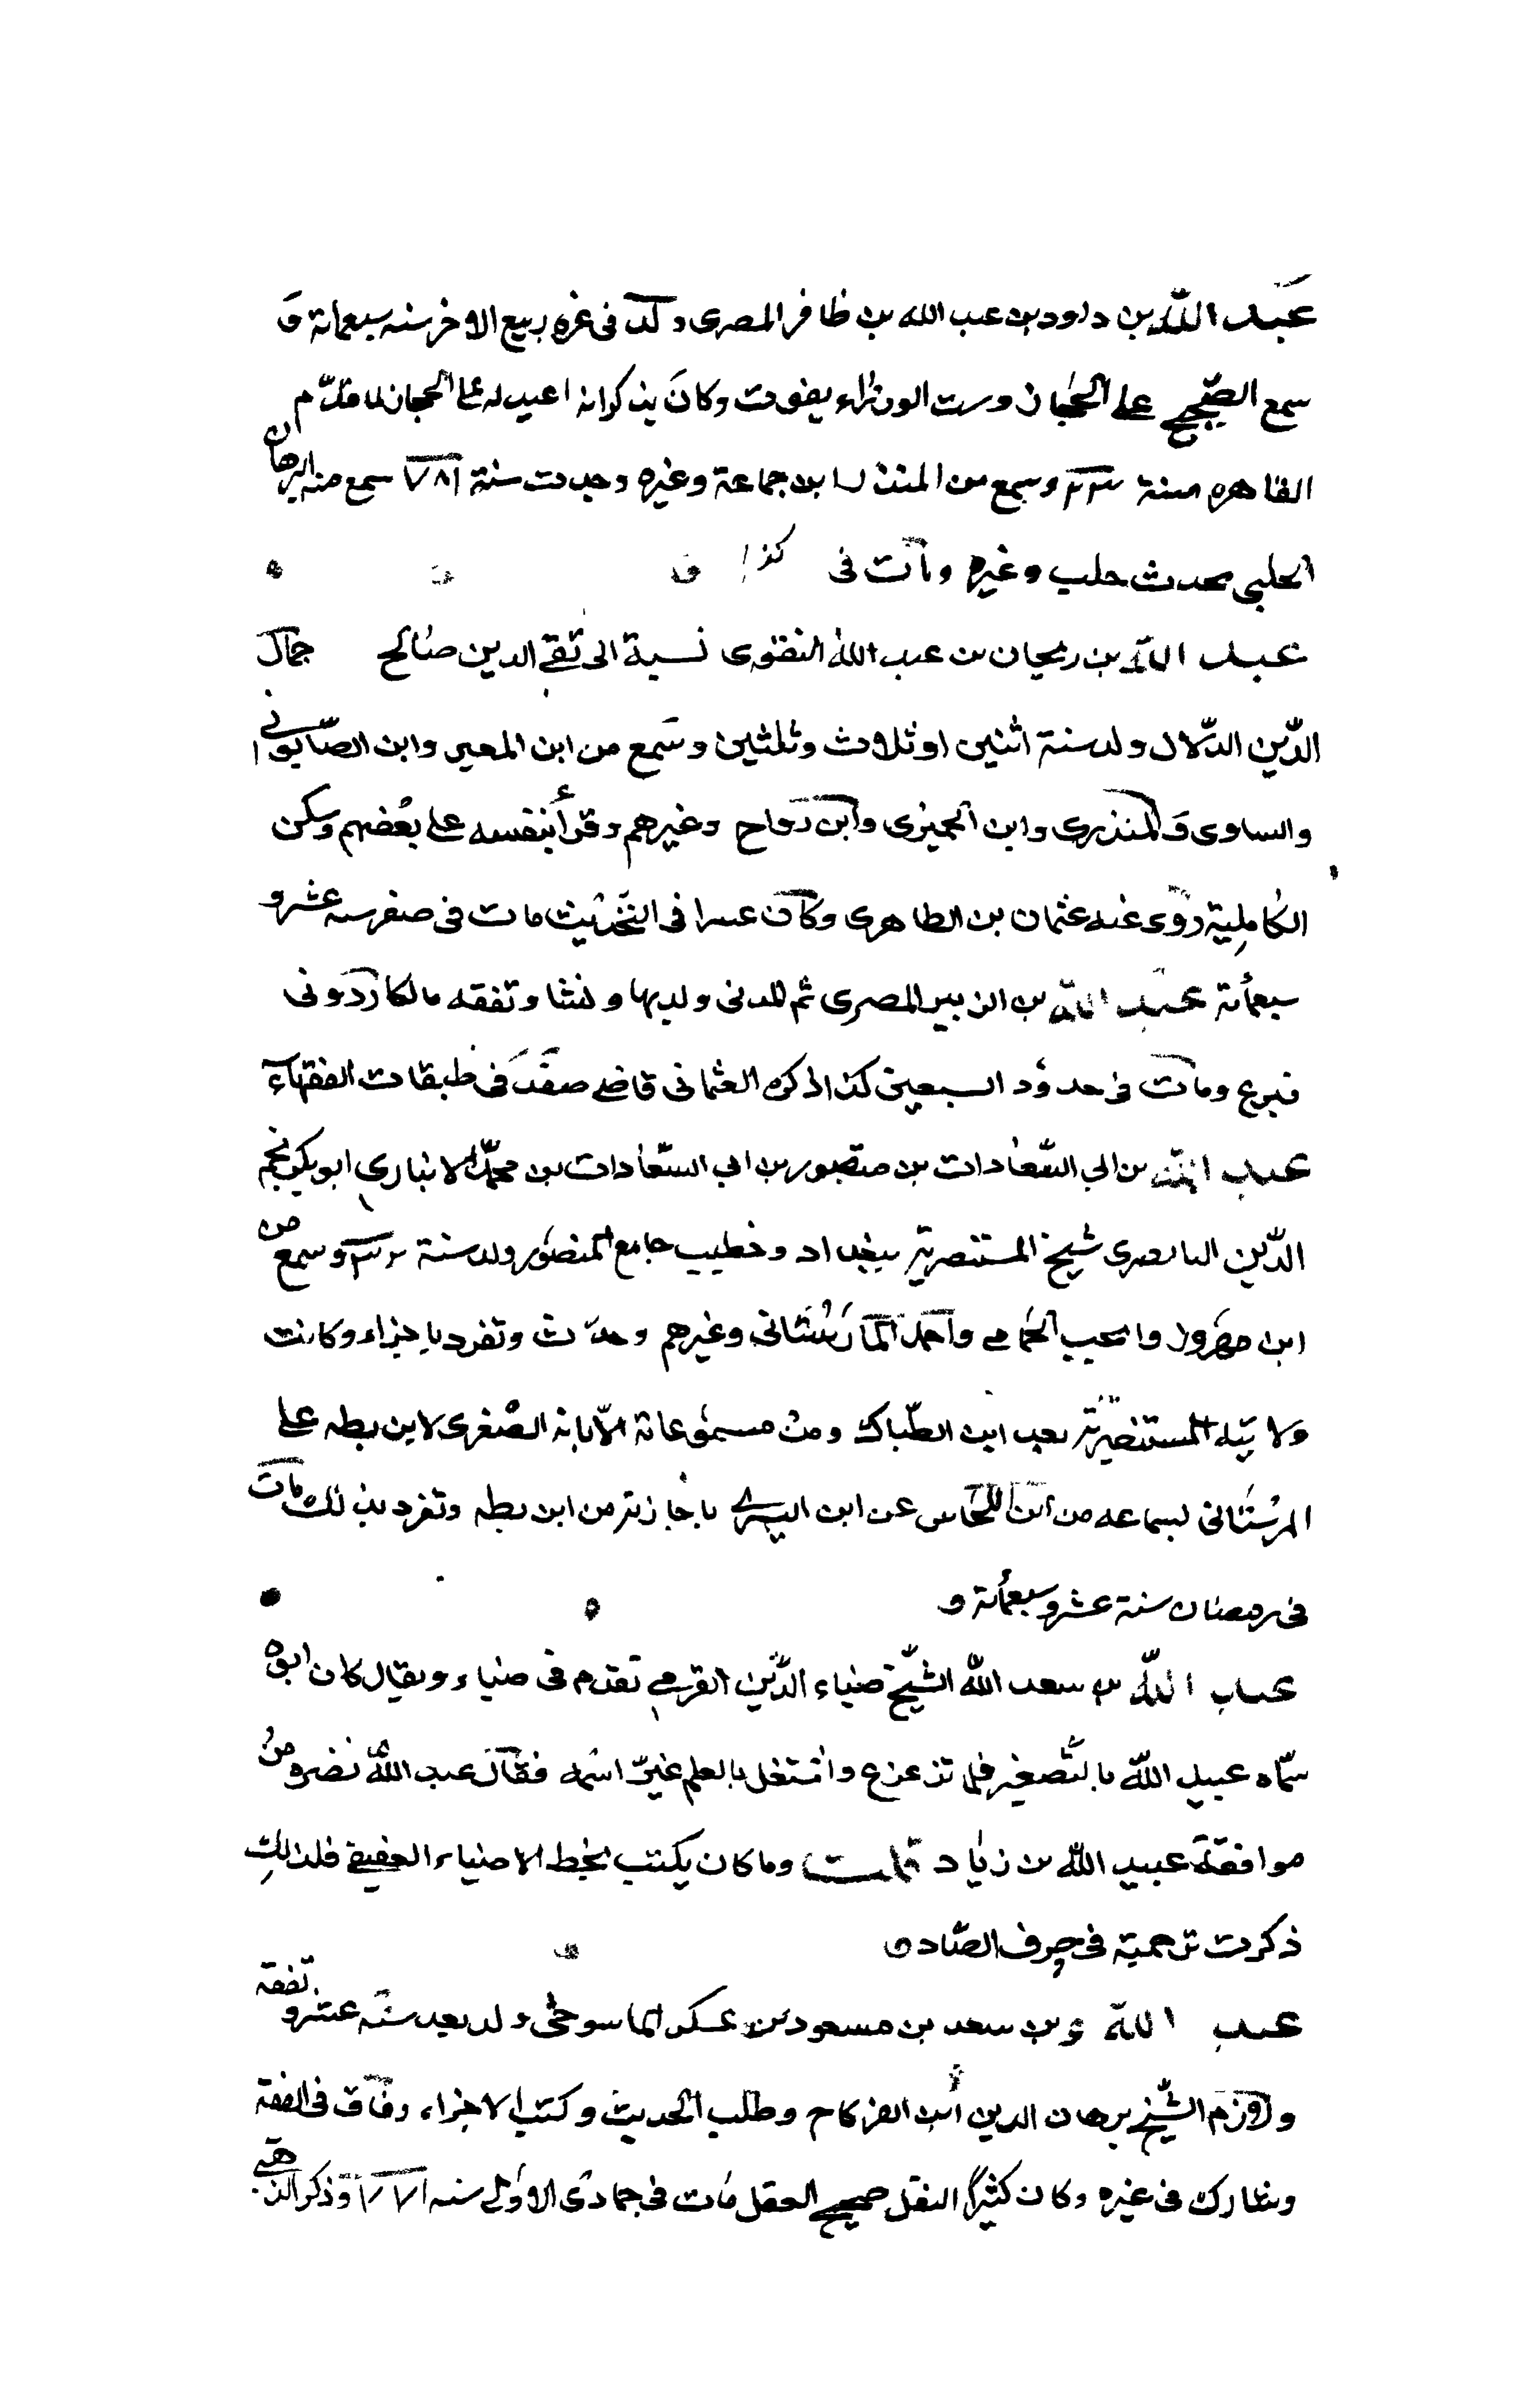 عبد الله بن داود بن عبد الله بن ظافر المصرى ولد فى غرة ربيع الاخر سنه سبعمائة و
سمع الصحيح على الحجار وست الوزراء يفوت وكان يذكر انه اعيد له على الحجار لما قدم
القاهره سنة وسمع من ابن جماعة وغيره وحدث سنة ٧٨١ سمع منه البرهان
الحلبى محدث حلب وغيره ومات فى كذا
عبد الله بن ريحان بن عبد الله التقوى نسبة الى تقى الدين صالح جمال
الدين الدلال ولد سنة اثنين او ثلاث وثلثين وسمع من ابن المقير وابن الصابونى
والساوى والمنذرى وابن الجميزى وابن رواح وغيرهم وقرأ بنفسه على بعضهم وسكن
الكاملية روى عنه عثمان بن الظاهرى وكان عسرا فى التحديث مات فى صفر سنه عشر و
سبعمائة عبد الله بن الزبير المصرى ثم المدنى ولد بها ونشا وتفقه بالكازرونى
فبرع ومات فى حدود السبعين كذا ذكره العثمانى قاضى صفد فى طبقات الفقهاء
عبد الله بن ابى السعادات بن منصور بن ابى السعادات بن محمد الانبارى ابو بكر نجم
الدين البابصرى شيخ المستنصرية ببغداد وخطيب جامع المنصور ولد سنة وسمع من
ابن بهروز وانجب الحمامى واحمد المارستانى وغيرهم وحدث وتفرد باجزاء وكانت
ولايته المستنصرية بعد ابن الطبال ومن مسموعاته الابانه الصغرى لابن بطه على
المرستانى بسماعه من ابن اللحاس عن ابن البسرى باجازته من ابن بطه وتفرد بذلك مات
فى رمضان سنة عشر وسبعمائة
عبد الله بن سعد الله الشيخ ضياء الدين القرمى تقدم فى ضياء ويقال كان ابوه
سماه عبيد الله بالتصغير فلما تزعزع واشتغل بالعلم غير اسمه فقال عبد الله نضرو من
موافقة عبيد الله بن زياد قلت وما كان يكتب بخطه الا ضياء العفيفى فلذلك
ذكرت ترجمته فى حرف الضاد
عبد الله بن سعد بن مسعود بن عسكر الماسوحى ولد بعد سنه عشر وتفقه
ولازم الشيخ برهان الدين ابن الفركاح وطلب الحديث وكتب الاجزاء وفاق فى الفقه
وشارك فى غيره وكان كثير النقل صحيح العقل مات فى جمادى الاولى سنه ٧٧١ وذكر الذهبى